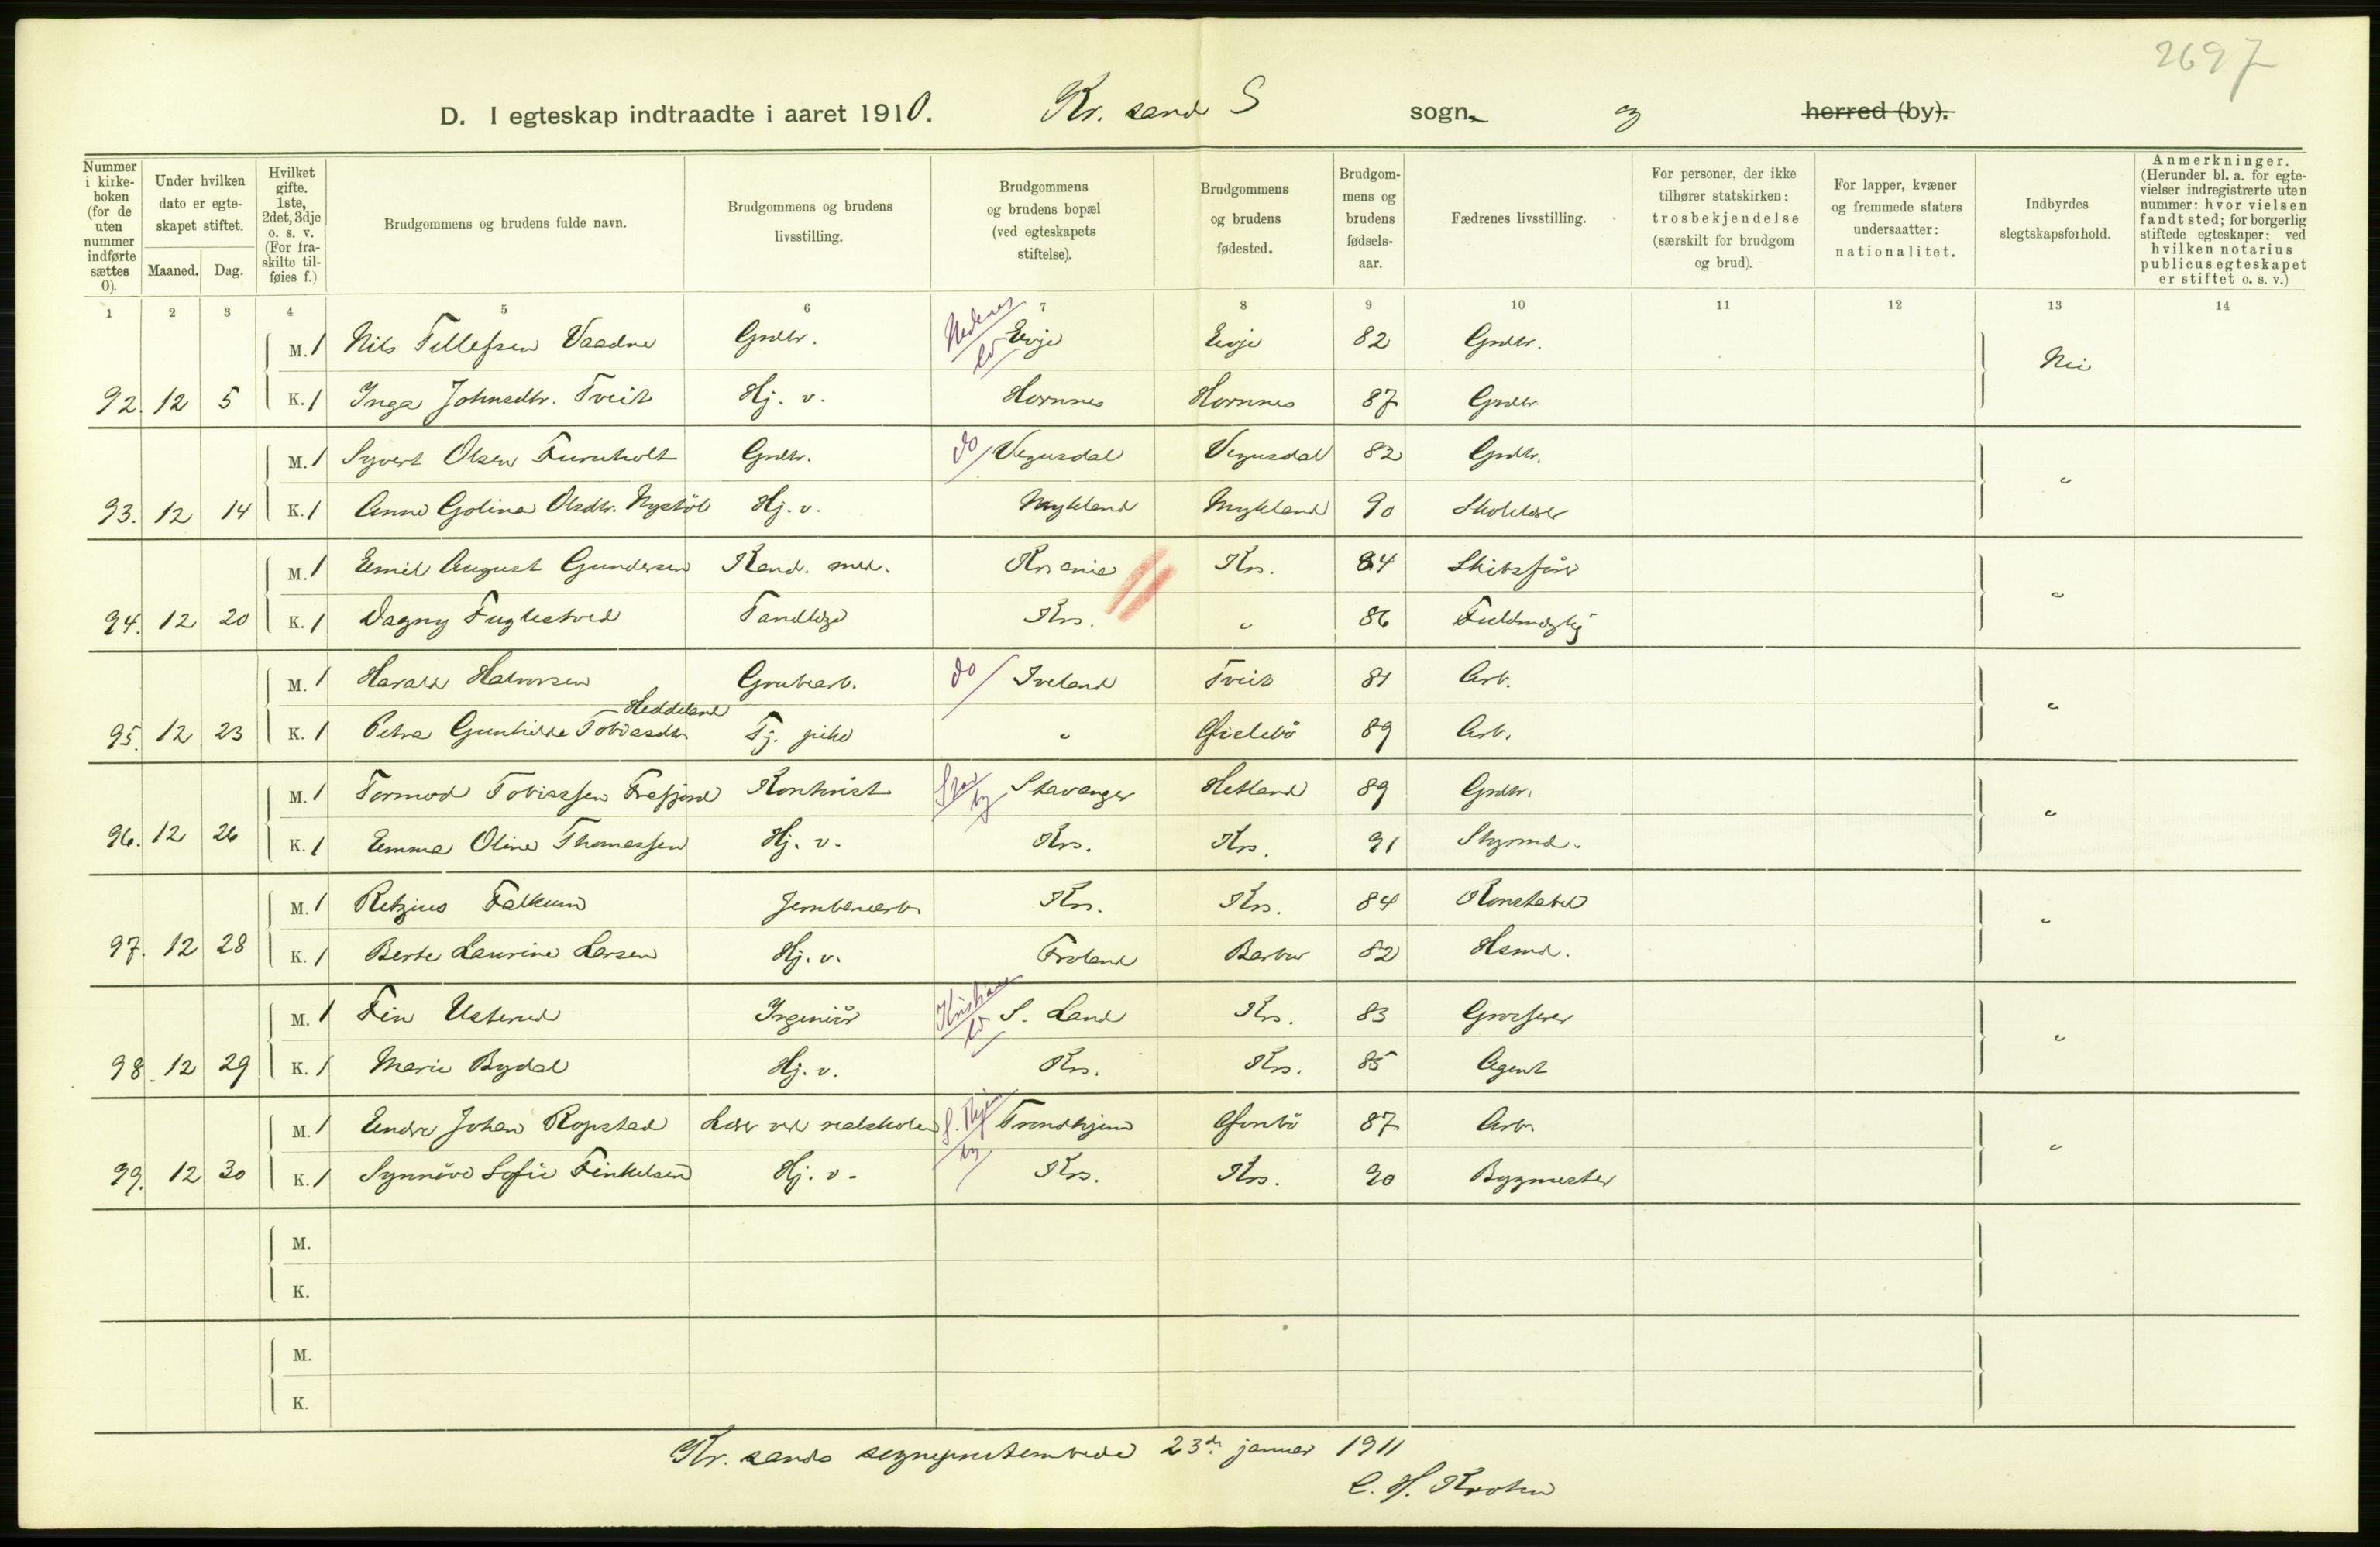 2697
D. I egteskap indtraadte i aaret 1910. Kr. sand S sogn. og herred (by).
Nummer i kirke-boken (for de uten nummer indførte sættes 0).
Under hvilken dato er egte-skapet stiftet.
Maaned. Dag.
Hvilket gifte. 1ste, 2det, 3dje o. s. v. (For fra-skilte til-føies f.)
Brudgommens og brudens fulde navn.
Brudgommens og brudens livsstilling.
Brudgommens og brudens bopæl (ved egteskapets stiftelse).
Brudgommens og brudens fødested.
Brudgom-mens og brudens fødsels-aar.
Fædrenes livsstilling.
For personer, der ikke tilhører statskirken: trosbekjendelse (særskilt for brudgom og brud).
For lapper, kvæner og fremmede staters undersaatter: nationalitet.
Indbyrdes slegtskapsforhold.
Anmerkninger. (Herunder bl. a. for egte-vielser indregistrerte uten nummer: hvor vielsen fandt sted; for borgerlig stiftede egteskaper: ved hvilken notarius publicus egteskapet er stiftet o. s. v.)
1 2 3 4 5 6 7 8 9 10 11 12 13 14
M. 1 Nils Tellefsen Vaadne Grdbr. Nedenes Evje Evje 82 Grdbr. Nei
92. 12 5 K. 1 Inga Johnsdtr. Tveit Hj. v. Hornnes Hornnes 87 Grdbr.
M. 1 Syvert Olsen Furuholt Grdbr. do Vegusdal Vegusdal 82 Grdbr. "
93. 12 14 K. 1 Anne Golina Olsdtr. Nystøl Hj. v. Mykland Mykland 90 Skolelærer
M. 1 Emil August Gundersen Kand. med. Krs ania Krs. 84 Skibsfører "
94. 12 20 K. 1 Dagny Fuglestved Tandlæge Krs. " 86 Fuldmægtig
M. 1 Harald Halvorsen Grubearb. do Iveland Tveit 81 Arb. "
Heddeland
95. 12 23 K. 1 Petra Gunhilde Tobiasdtr. Tj. pike " Øielebø 89 Arb.
M. 1 Tormod Tobiassen Frafjord Kontorist Stav by Stavanger Hetland 89 Grdbr. "
96. 12 26 K. 1 Emma Oline Thomassen Hj. v. Krs. Krs. 91 Styrmd.
M. 1 Retzius Falkum Jernbanearb. Krs. Krs. 84 Konstabel "
97. 12 28 K. 1 Berte Laurine Larsen Hj. v. Froland Barbu 82 Hsmd.
M. 1 Fin Usterud Ingeniør Kristians S. Land Krs. 83 Grosserer "
98. 12 29 K. 1 Marie Bydal Hj. v. Krs. Krs. 85 Agent
M. 1 Endre Johan Ropstad Lærer ved realskolen S. Thjem by Trondhjem 87 Arb. "
99. 12 30 K. 1 Synnøve Sofie Finkelsen Hj. v. Krs. Krs. 90 Bygmester
M.
K.
M.
K.
Kr. sands sogneprestembede 23de januar 1911
C. H. Krohn